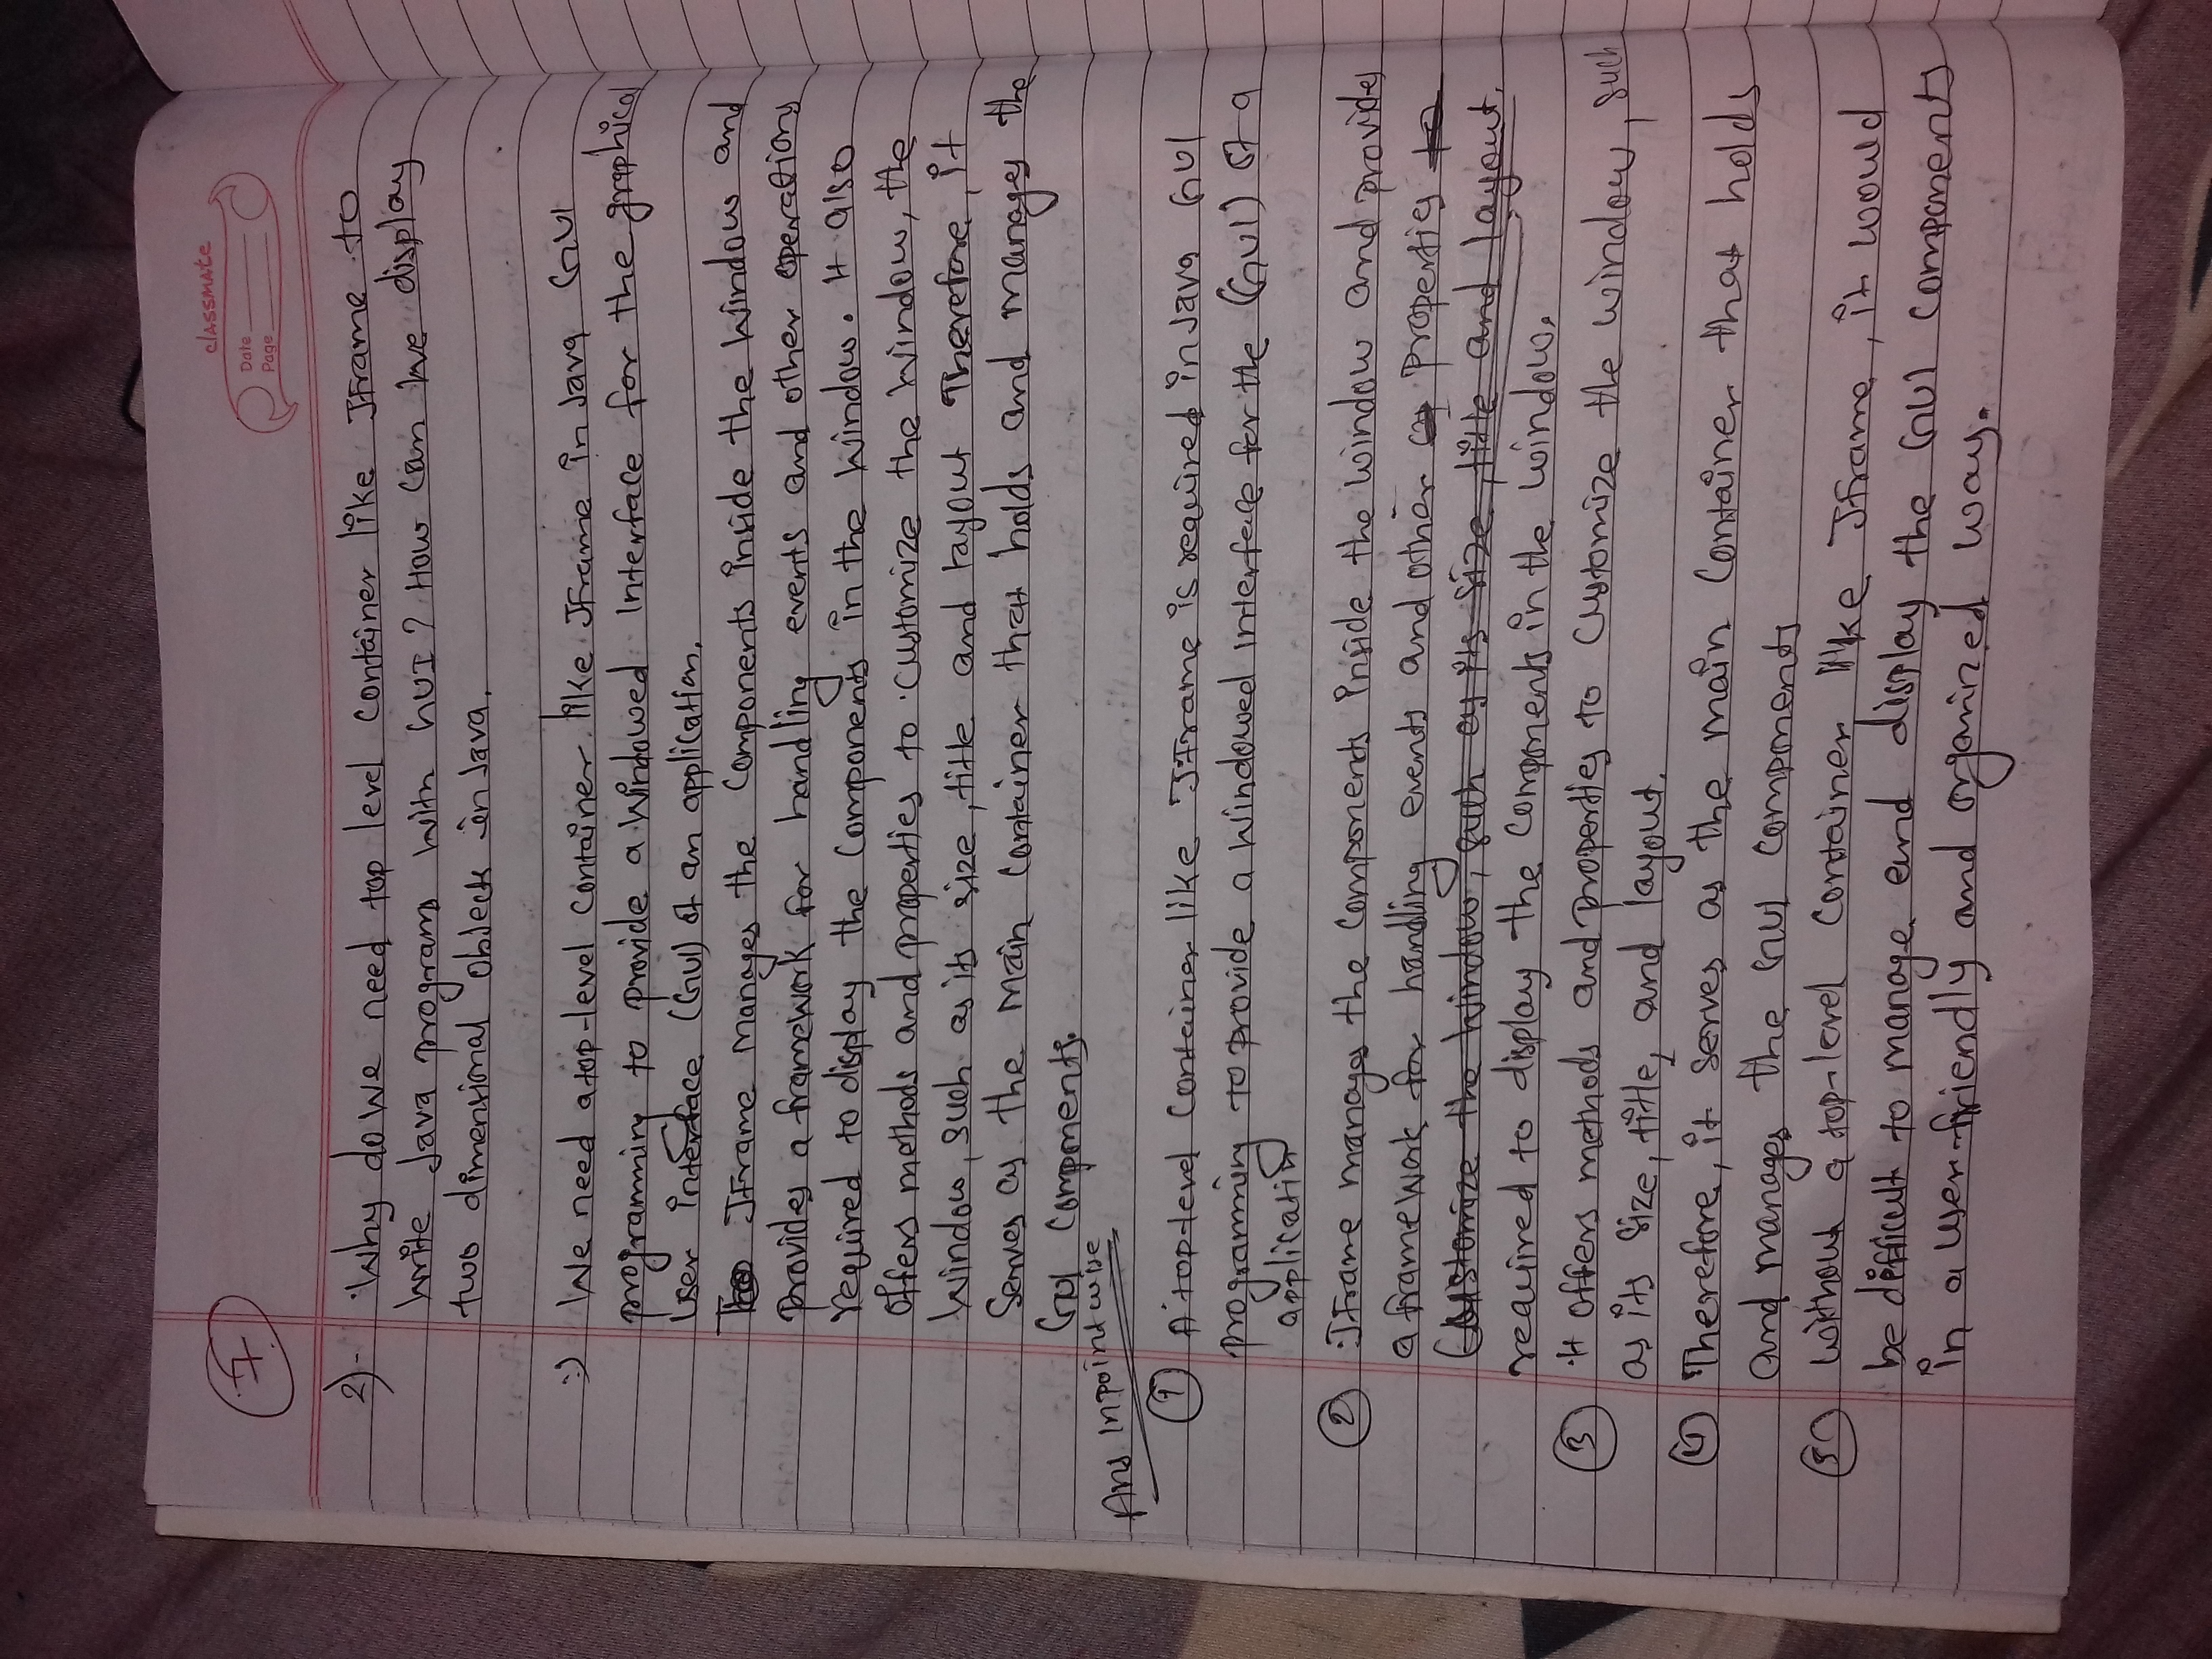 7
classmate
Date
Page
2)- Why do we need top level container like JFrame to
write Java programs with GUI? How can we display
two dimensional objects in Java.
:) We need a top-level container like JFrame in Java GUI
programming to provide a windowed interface for the graphical
user interface (GUI) of an application.
JFrame manages the components inside the window and
provides a framework for handling events and other operations
required to display the components in the window. It also
offers methods and properties to customize the window, the
window, such as its size, title and layout Therefore, it
serves as the main container that holds and manages the
GUI components.
Ans In pointwise
① A top-level container like JFrame is required in Java GUI
programming to provide a windowed interface for the (GUI) of a
application
② JFrame manages the components inside the window and provides
a framework for handling events and other properties to
customize the window, such as its size, title and layout.
required to display the components in the window.
③ It offers methods and properties to customize the window, such
as its size, title, and layout.
④ Therefore, it serves as the main container that holds
and manages the GUI components
⑤ without a top-level container like JFrame, it would
be difficult to manage and display the GUI components
in a user-friendly and organized way.